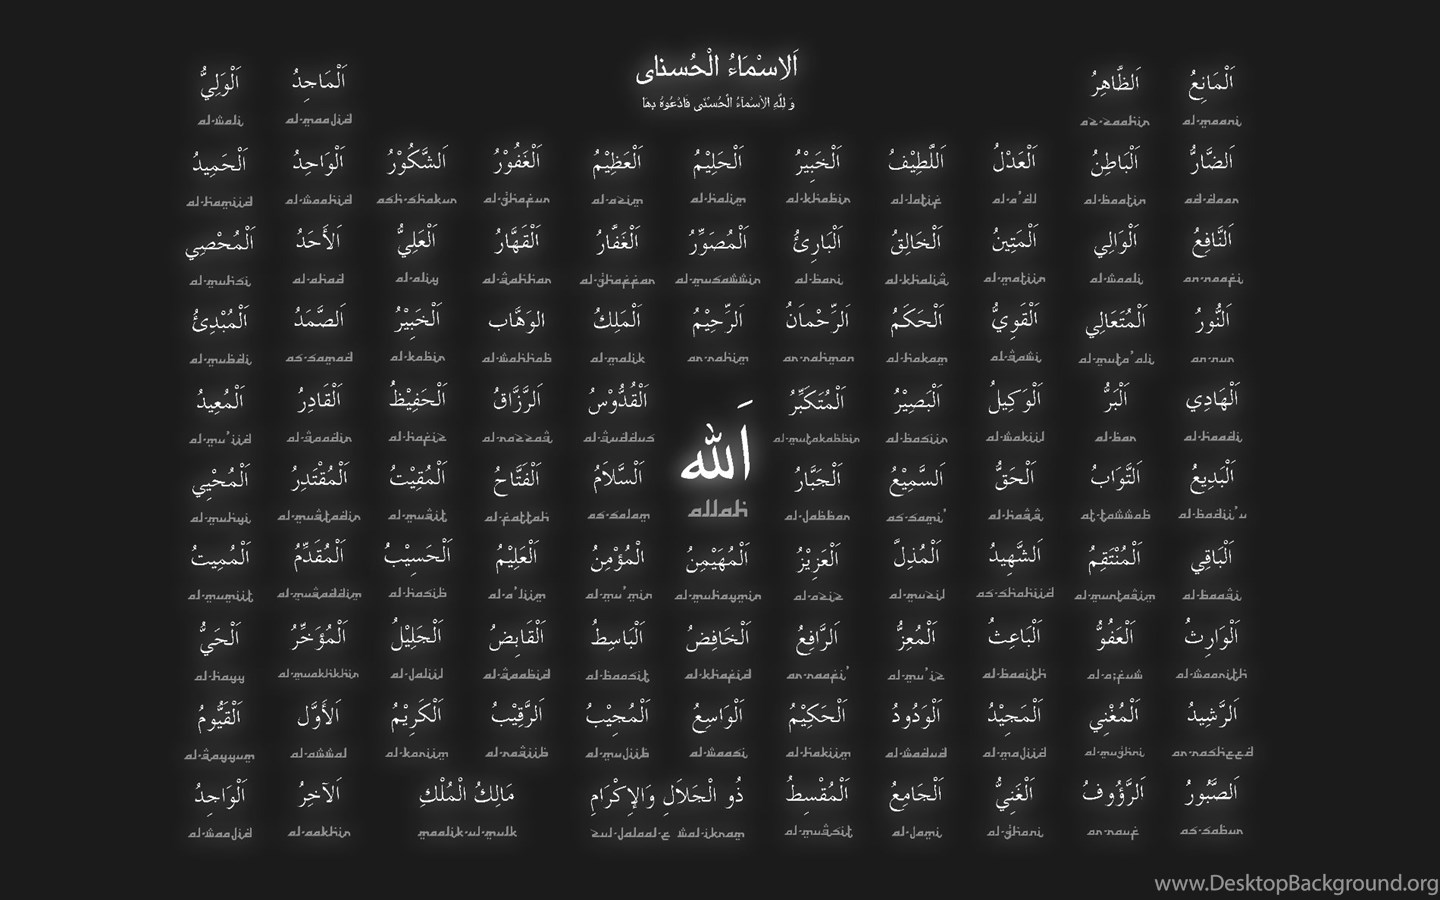 اَلاسْمَاءُ الْحُسناى
وَ لِلّٰهِ الاَسْمَاءُ الْحُسْنٰى فَادْعُوهُ بِهَا
اَلْمَانِعُ اَلظَّاهِرُ اَلْمَاجِدُ اَلْوَلِيُّ
al-wali al-maajid az-zaahir al-maani
اَلضَّارُّ اَلْبَاطِنُ اَلْعَدْلُ اَللَّطِيْفُ اَلْخَبِيْرُ اَلْحَلِيْمُ اَلْعَظِيْمُ اَلْغَفُوْرُ اَلشَّكُوْرُ اَلْوَاحِدُ اَلْحَمِيدُ
al-hamiid al-waahid ash-shakur al-ghafur al-azim al-halim al-khabir al-latif al-a'dl al-baatin ad-daar
اَلنَّافِعُ اَلْوَالِي اَلْمَتِينُ اَلْخَالِقُ اَلْبَارِئُ اَلْمُصَوِّرُ اَلْغَفَّارُ اَلْقَهَّارُ اَلْعَلِيُّ الأَحَدُ اَلْمُحْصِي
al-muhsi al-ahad al-aliy al-qahhar al-ghaffar al-musawwir al-bari al-khaliq al-matiin al-waali an-naafi
اَلنُّورُ اَلْمُتَعَالِي اَلْقَوِيُّ اَلْحَكَمُ اَلرَّحْمانُ اَلرَّحِيْمُ اَلْمَلِكُ الوَهَّاب اَلْخَبِيْرُ اَلصَّمَدُ اَلْمُبْدِئُ
al-mubdi as-samad al-kabir al-wahhab al-malik ar-rahim ar-rahman al-hakam al-qawi al-muta'ali an-nur
اَلْهَادِي اَلْبَرُّ اَلْوَكِيلُ اَلْبَصِيْرُ اَلْمُتَكَبِّرُ اَلْقُدُّوْسُ اَلرَّزَّاقُ اَلْحَفِيْظُ اَلْقَادِرُ اَلْمُعِيدُ
al-mu'iid al-qaadir al-hafiz al-razzaq al-quddus al-mutakabbir al-basiir al-wakiil al-bar al-haadi
اَلله
allah
اَلْبَدِيعُ اَلتَّوَابُ اَلْحَقُّ اَلسَّمِيْعُ اَلْجَبَّارُ اَلْسَّلاَمُ اَلْفَتَّاحُ اَلْمُقِيْتُ اَلْمُقْتَدِرُ اَلْمُحْيِي
al-muhyi al-muqtadir al-muqit al-fattah as-salam al-jabbar as-sami' al-haqq at-tawwab al-badii'u
اَلْبَاقِي اَلْمُنْتَقِمُ اَلشَّهِيدُ اَلْمُذِلَّ اَلْعَزِيْزُ اَلْمُهَيْمِنُ الْمُؤْمِنُ اَلْعَلِيْمُ اَلْحَسِيْبُ اَلْمُقَدِّمُ اَلْمُمِيتُ
al-mumiit al-muqaddim al-hasib al-a'liim al-mu'min al-muhaymin al-aziz al-muzil as-shahiid al-muntaqim al-baaqi
اَلْوَارِثُ اَلْعَفُوُّ اَلْبَاعِثُ اَلْمُعِزُّ اَلرَّافِعُ اَلْخَافِضُ اَلْبَاسِطُ اَلْقَابِضُ اَلْجَلِيْلُ اَلْمُؤَخِّرُ اَلْحَيُّ
al-hayy al-muakhkhir al-jaliil al-qaabid al-baasit al-khafid ar-raafi' al-mu'iz al-baaith al-a;fuw al-waarith
اَلرَّشِيدُ اَلْمُغْنِي اَلْمَجِيْدُ اَلْوَدُودُ اَلْحَكِيْمُ اَلْوَاسِعُ اَلْمُجِيْبُ اَلرَّقِيْبُ اَلْكَرِيْمُ الأَوَّل اَلْقَيُّومُ
al-qayyum al-awwal al-kariim al-raqiib al-mujiib al-waasi al-hakiim al-wadud al-majiid al-mughni ar-rasheed
اَلصَّبُورُ اَلرَّؤُوفُ اَلْغَنِيُّ اَلْجَامِعُ اَلْمُقْسِطُ ذُو الْجَلاَلِ وَالإِكْرَامِ مَالِكُ الْمُلْكِ اَلآخِرُ اَلْوَاجِدُ
al-waajid al-aakhir maalik-ul-mulk zul-jalaal-e wal-ikram al-muqsit al-jami al-ghani ar-rauf as-sabur
www.DesktopBackground.org